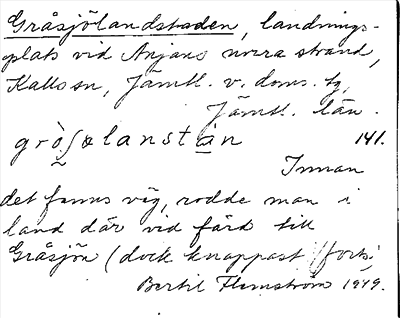 Gråsjölandstaden, landnings-
plats vid Anjans norra strand,
Kalls sn, Jämtl. v. doms. tg,
Jämtl. län.
grò̰ʃølanstàn 141.
Innan
det fanns väg, rodde man i
land där vid färd till
Gråsjön (dock knappast (forts.)
Bertil Flemström 1979.